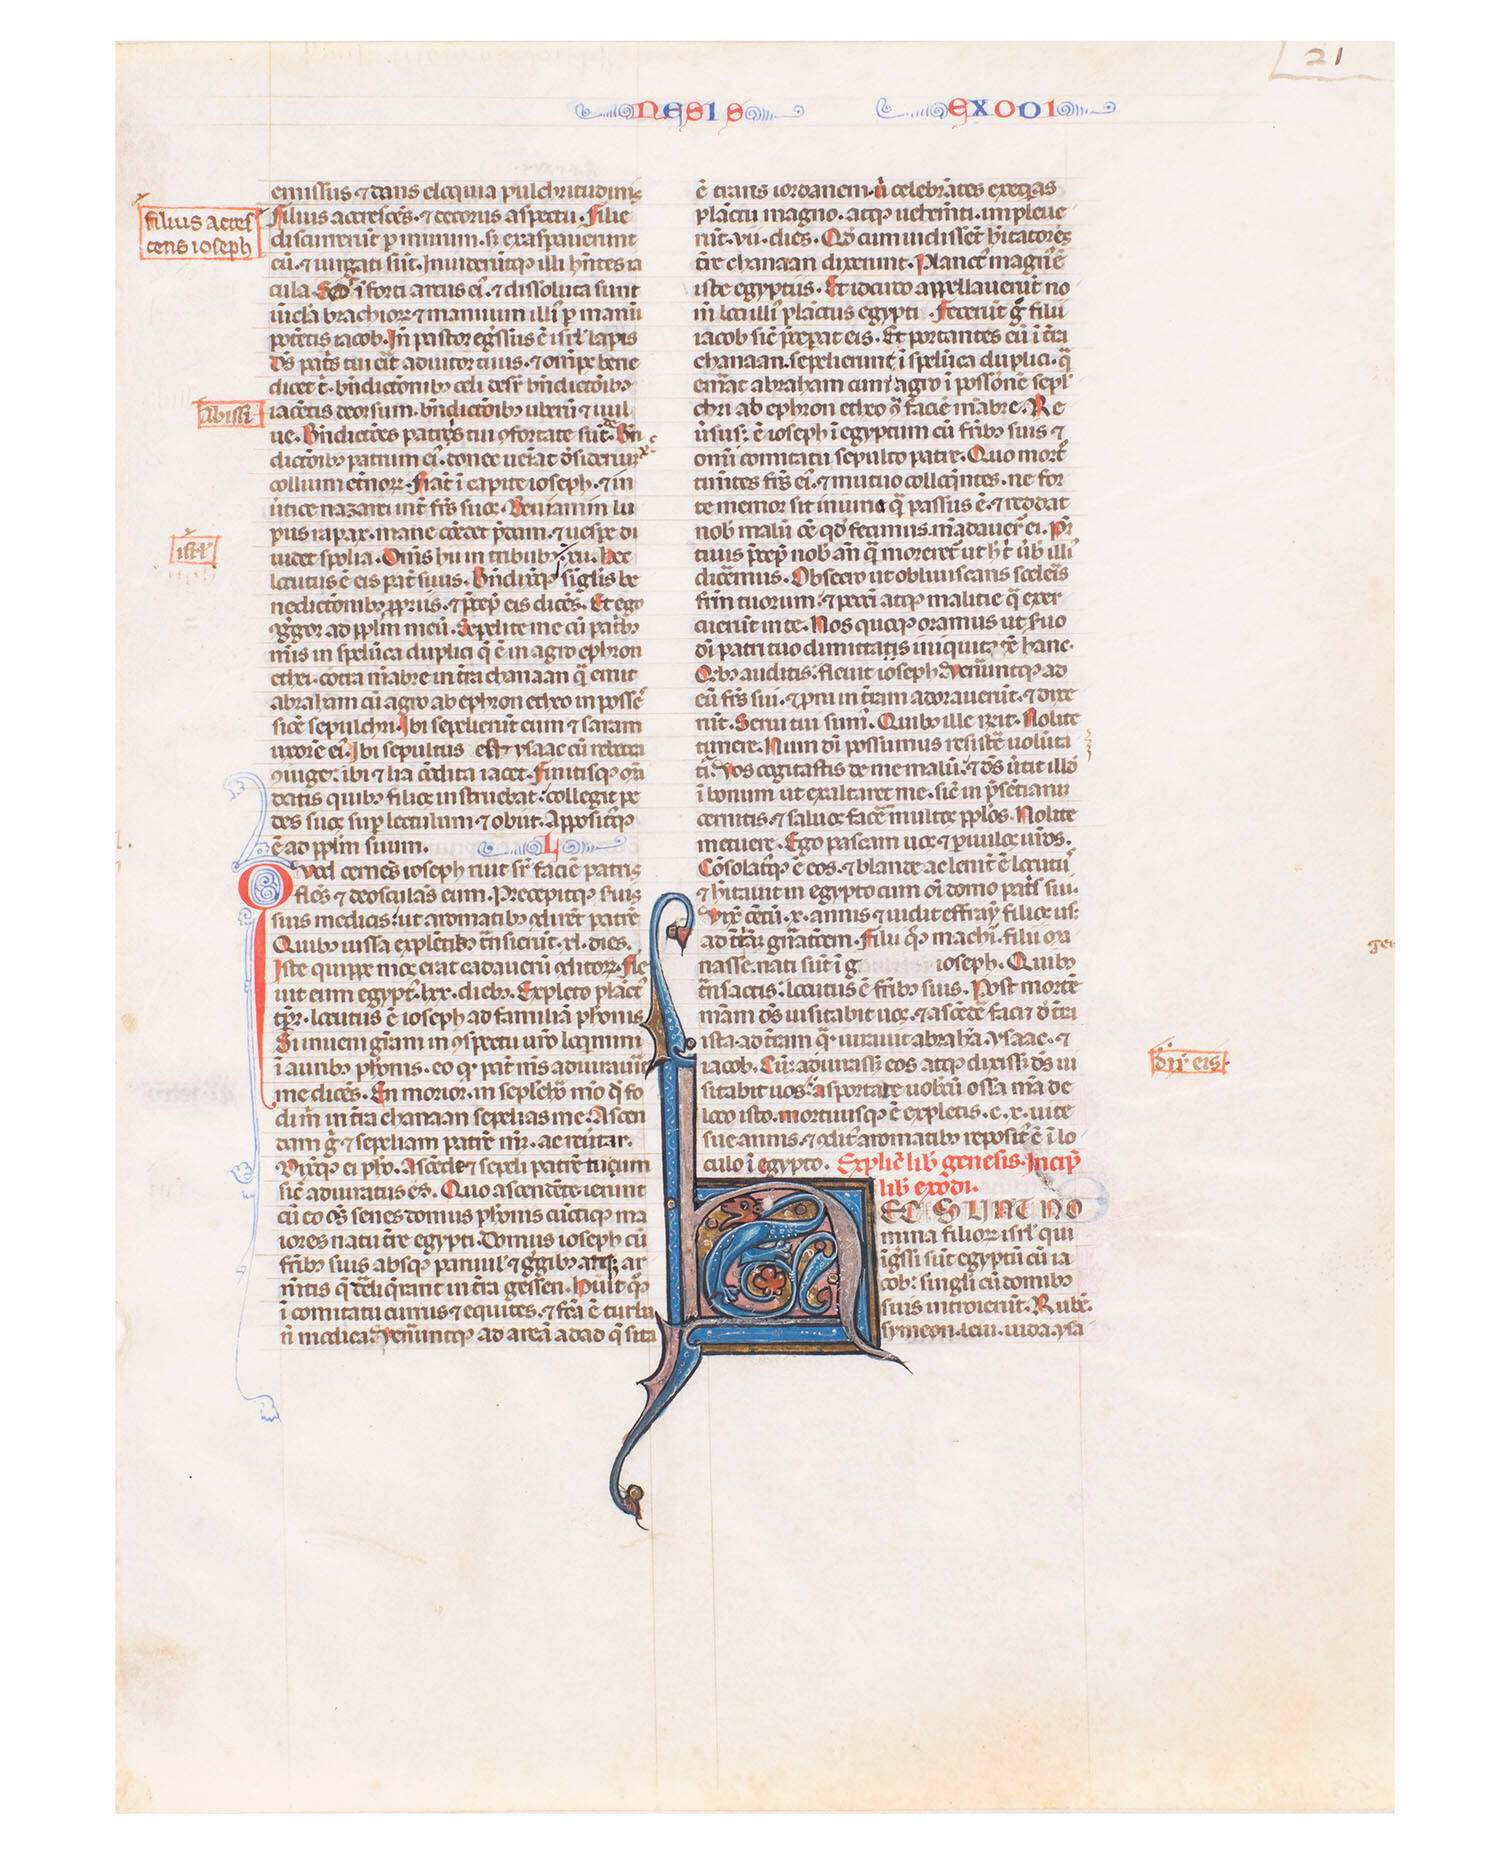 21
NESIS EXODI
emissus ⁊ dans eloquia pulchritudinis
filius acres
cens ioseph
Filius accrescēs ⁊ decorus aspectu. Filie
discurrerūt
cū. ⁊ iurgati sūt. Inuiderūtqꝫ illi hn̄tes ia
cula. Sedit ī forti arcus eiꝰ. ⁊ dissoluta sunt
uīcla brachioꝝ ⁊ manuum illiꝰ p manū
potētis iacob. In pastor egssus ē isrł lapis
ds̄ pat̄s tui erit adiutor tuus. ⁊ omp̄s bene
dicet t̄. bn̄dictōnibꝫ celi desr̄ bn̄dictōibꝫ
abissi
iacētis deorsum. bn̄dictōibꝫ uberū ⁊ uul
ue. Bn̄dictōes patris tui ꝯfortate sūt. Bn̄
dictōibꝫ patrum eiꝰ. donec ueniat
collium et̄noꝝ. Fiāt ī capite ioseph. ⁊ in
ūtice nazarei int̄ frs̄ suos. Beniamin lu
pus rapax. mane comedet p̄dam. ⁊ uesꝑe di
isrł
uidet spolia. Om̄s hii in tribubꝫ xii. Hec
locutus ē eis pat̄ suus. Bn̄dixitqꝫ sīglis be
nedictōnibꝫ ꝓpriis. ⁊ p̄cep̄ eis dicēs. Et ego
ꝯg̃gor ad ppłm meū. Sepelite me cū patribꝫ
meis in spelūca duplici q̄ ē in agro ephron
ethei. cōtra mābre in t̄ra chanaan quā emit
abraham cū agro ab ephron etheo in possēs
sionē sepulchri. Ibi sepelierūt eum ⁊ saram
uxorē eiꝰ. Ibi sepultus est ysaac cū rebecca
ꝯiuge. ibi ⁊ lia cōdita iacet. Finitisqꝫ mā
datis quibꝫ filios instruebat. collegit pe
des suos suꝑ lectulum ⁊ obiit. Appositꝰqꝫ
ē ad ppłm suum. L
Qvod cernēs ioseph ruit sr̄ faciē patris
flēs ⁊ deosculās eum. Precepitqꝫ suis
suis medicis. ut aromatibꝫ ꝯdirēt patrē.
Quibꝫ iussa explētibꝫ t̄nsierūt .xl. dies.
Iste quippe mos erat cadauerū ꝯditoꝝ. Fle
uit eum egyptꝰ .lxx. diebꝫ. Expleto plāctꝰ
tꝑr̄. locutus ē ioseph ad familiā phōnis.
Si inueni gr̄am in ꝯspectu uro loqīmini
ī auribꝫ phōnis. eo q̄ pat̄ ms̄ adiurauit
me dicēs. En morior. in seplcro mō q̄ fo
di m̄ in t̄ra chanaan sepelias me. Ascen
dam g̊ ⁊ sepeliam patrē mm̄. ac reūtar.
Dixitqꝫ ei phō. Ascēde ⁊ sepeli patrē tuum
sic̄ adiuratus es. Quo ascendēte ierunt
cū eo om̄s senes domus phōnis cūctiqꝫ ma
iores natu t̄re egypti. Domus ioseph cū
fribꝫ suis absqꝫ paruul' ⁊ g̊gibꝫ atqꝫ ar
mētis q̄ deliq̄rant in t̄ra gessen. Huit qꝫ
ī comitatu currus ⁊ equites. ⁊ fcā ē turba
n̄ modica. Uenerūtqꝫ ad areā adad q̄ sita
ē trans iordanem. ubi celebrātes exequias
plāctu magno. atqꝫ uehemēti. impleue
rūt .vii. dies. Qd̄ cum uidissēt habitatores
t̄re chanaan dixerunt. Planctꝰ magnꝰ ē
iste egyptus. Et idcirco appellauerūt no
m̄ loci illiꝰ plāctus egypti. Fecerūt g̊ filii
iacob sic̄ p̄ceperat eis. Et portantes eū ī t̄rā
chanaan. sepelierunt ī spelūca duplici. quā
emāt abraham cum agro ī possionē sepl'
chri ab ephron etheo ꝯ̄ faciē mābre. Re
ūsusqꝫ ē ioseph ī egyptum cū fribꝫ suis ⁊
omī comitatu sepulto patre. Quo mortꝰ
timētes frs̄ eiꝰ. ⁊ mutuo colloqentes. ne for
te memor sit iniurie q̄ passus ē. ⁊ reddat
nob̄ malū oē qd̄ fecimus. mādauerūt ei. Pat̄
tuus p̄cep̄ nob̄ an̄ q̄ moreret̄ ut h̄ t̄ ūbis illiꝰ
dicēmus. Obsecro ut obliuiscaris sceleris
frm̄ tuorum. ⁊ peccati atqꝫ malitie q̄ exer
cuerūt in te. Nos quoqꝫ oramus ut suo
di patri tuo dimittatis iniquitatē hanc.
Quibꝫ auditis. fleuit ioseph. Uenerūntqꝫ ad
eū frs̄ sui. ⁊ proni in t̄ram adorauerūt. ⁊ dixe
rūt. Serui tui sumꝰ. Quibꝫ ille rn̄dit. Nolite
timere. Num di possumus resistē uolūta
ti. Vos cogitastis de me malū. ⁊ ds̄ ūtit illd̄
ī bonum ut exaltaret me. sic̄ in p̄sētiarū
cernitis. ⁊ saluos facēt multos pplos. Nolite
metuere. Ego pascam uos ⁊ paruulos uros.
Cōsolatusqꝫ ē eos. ⁊ blande ac lenit̄ ē locutꝰ
⁊ habitauit in egypto cum oi domo patris sui.
Vixitqꝫ cētū .x. annis ⁊ uidit effraym filios usqꝫ
ad tertiam gn̄atōem. Filii qꝫ machir filii ma
nasse. nati sūt ī g ioseph. Quibꝫ
t̄nsactis. locutus ē fribꝫ suis. Post mortē
mam̄ ds̄ uisitabit uos. ⁊ ascēde faciet de t̄ra
ista. ad t̄ram quā iurauit abrahā. ysaac. ⁊
dix̄ eis
iacob. Cūqꝫ adiurasset eos atqꝫ dixisset ds̄ ui
sitabit uos. asportate uobcū ossa mā de
loco isto. mortuusqꝫ ē expletis .c.x. uite
sue annis. ⁊ ꝯditꝰ aromatibꝫ repositꝰ ē ī lo
culo ī egypto. Explic̄ lib̄ genesis. Incip̄
lib̄ exodi.
HEC SUNT NO
mina filioꝝ isrł qui
īgssi sūt egyptū cū ia
cob. singli cū domibꝫ
suis introierūt. Rubē.
symeon. leui. iuda. ysa